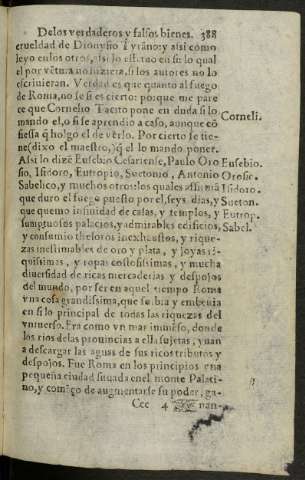 De los verdaderos y falsos bienes. 388
crueldad de Dionysio Tyràno: y asi como
leyo en los otros, asi lo
el por vẽtura no hiziera, si los autores no lo
escriuieran. Verdad es que quanto al fuego
de Roma, no se si es cierto: porque me pare
ce que Cornelio Tacito pone en duda si lo
mando el, o si se aprendio a caso, aunque cõ
Corneli.
fiessa q̃ holgo el de verlo. Por cierto se tie-
ne (dixo el maestro,) q̃ el lo mando poner.
Asi lo dizẽ Eusebio Cesariense, Paulo Oro
sio, Isidoro, Eutropio, Suetonio, Antonio
Sabelico, y muchos otros: los quales Isidoro.
que duro el fuego puesto por el, seys dias, y Sueton.
que quemo infinidad de casas, y templos, y Eutrop.
sumptuosos palacios, y admirables edificios, Sabel.
y consumio thesoros inexhaustos, y rique-
zas inestimables de oro y plata, y joyas ri-
quissimas, y ropas costosissimas, y mucha
diuersidad de ricas mercaderias y despojos
del mundo, por ser en aquel tiempo Roma
vna cosa grandissima, que se bia y embeuia
en si lo principal de todas las riquezas del
vniuerso. Era como vn mar inmẽso, donde
los rios de las prouincias a ella sujetas, yuan
a descargar las aguas de sus ricos tributos y
despojos. Fue Roma en los principios vna
pequeña ciudad situada en el monte Palati-
no, y començo de augmentarse su poder, ga-
Ccc 4 nan-